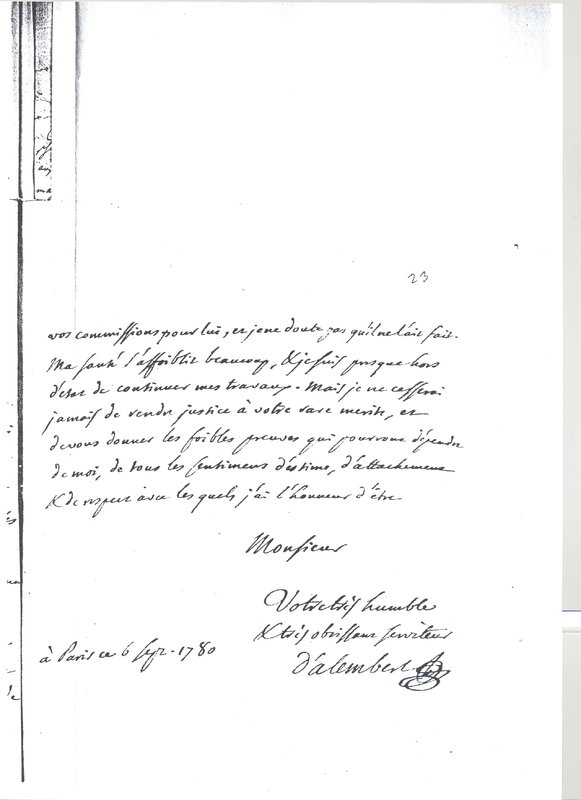 23
vos commissions pour lui, et je ne doute pas qu'il ne l'ait fait.
Ma santé s'affoiblit beaucoup, & je suis presque hors
d'état de continuer mes travaux. Mais je ne cesserai
jamais de rendre justice à votre rare merite, et
de vous donner les foibles preuves qui pourront dépendre
de moi, de tous les sentimens d'estime, d'attachement
& de respect avec les quels j'ai l'honneur d'être.
Monsieur
Votre très humble
& très obeissant serviteur
à Paris ce 6 sept. 1780
d'alembert